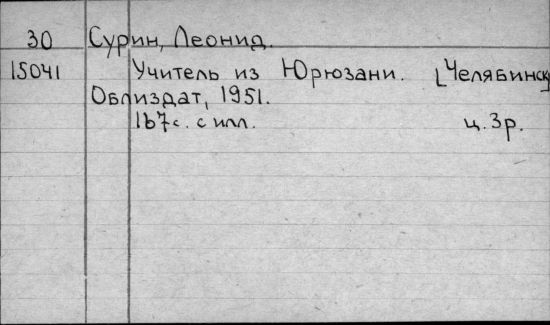 30 Сурин, Леонид.
15041 Учитель из Юрюзани. [Челябинск]
Облиздат, 1951.
167с. с илл. ц. 3р.